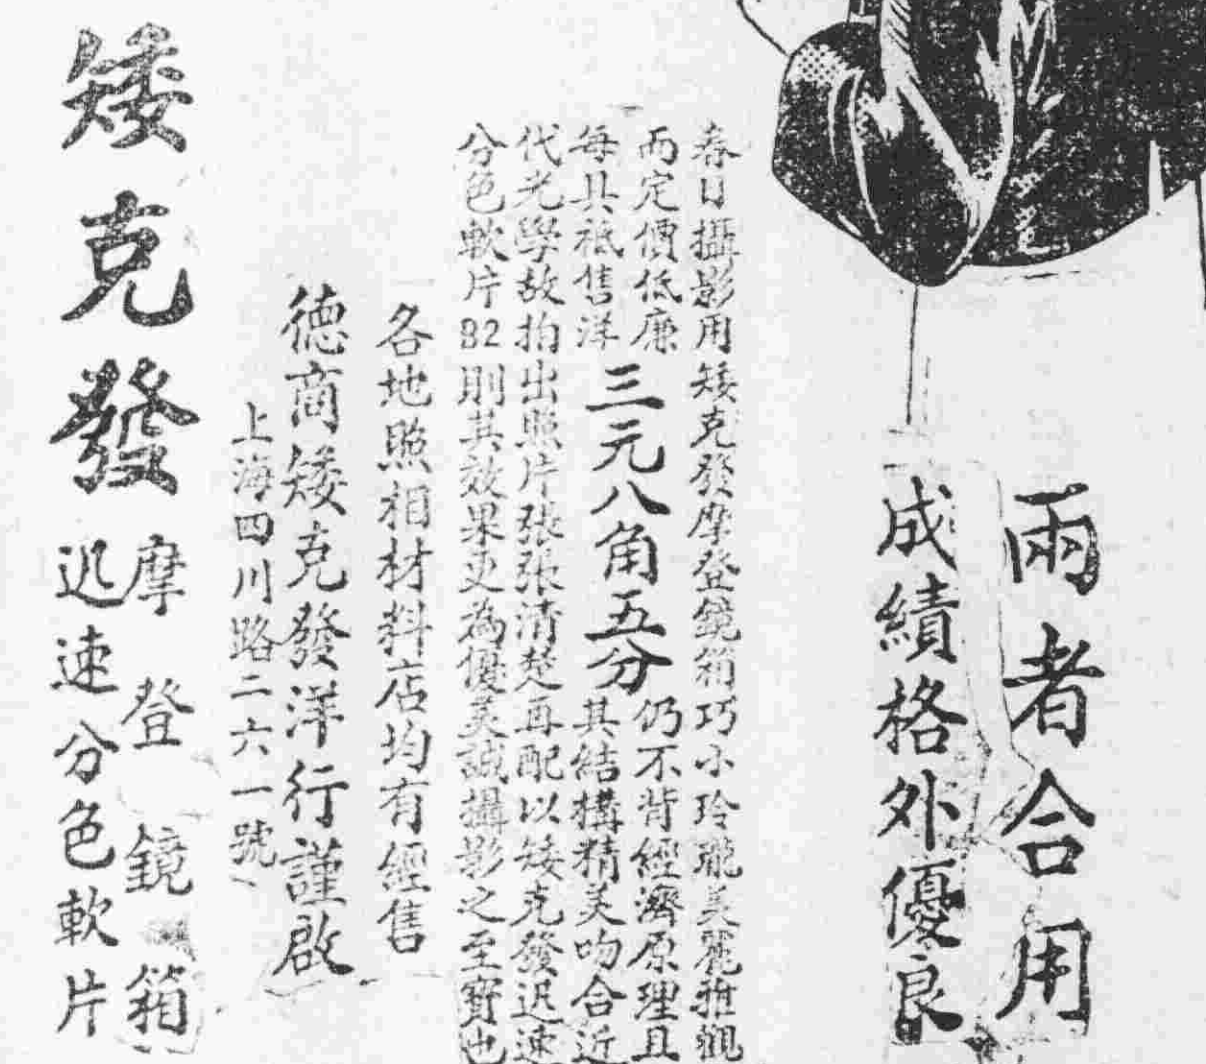 兩者合用
成績格外優良
春日攝影用矮克發摩登鏡箱巧小玲瓏美麗雅觀
而定價低廉
每具祗售洋
三元八角五分
仍不背經濟原理且
其結構精美吻合近
代光學故拍出照片張張清楚再配以矮克發迅速
分色軟片B2則其效果更為優美誠攝影之至寶也
各地照相材料店均有經售
德商矮克發洋行謹啟
上海四川路二六一號
矮克發
摩登鏡箱
迅速分色軟片